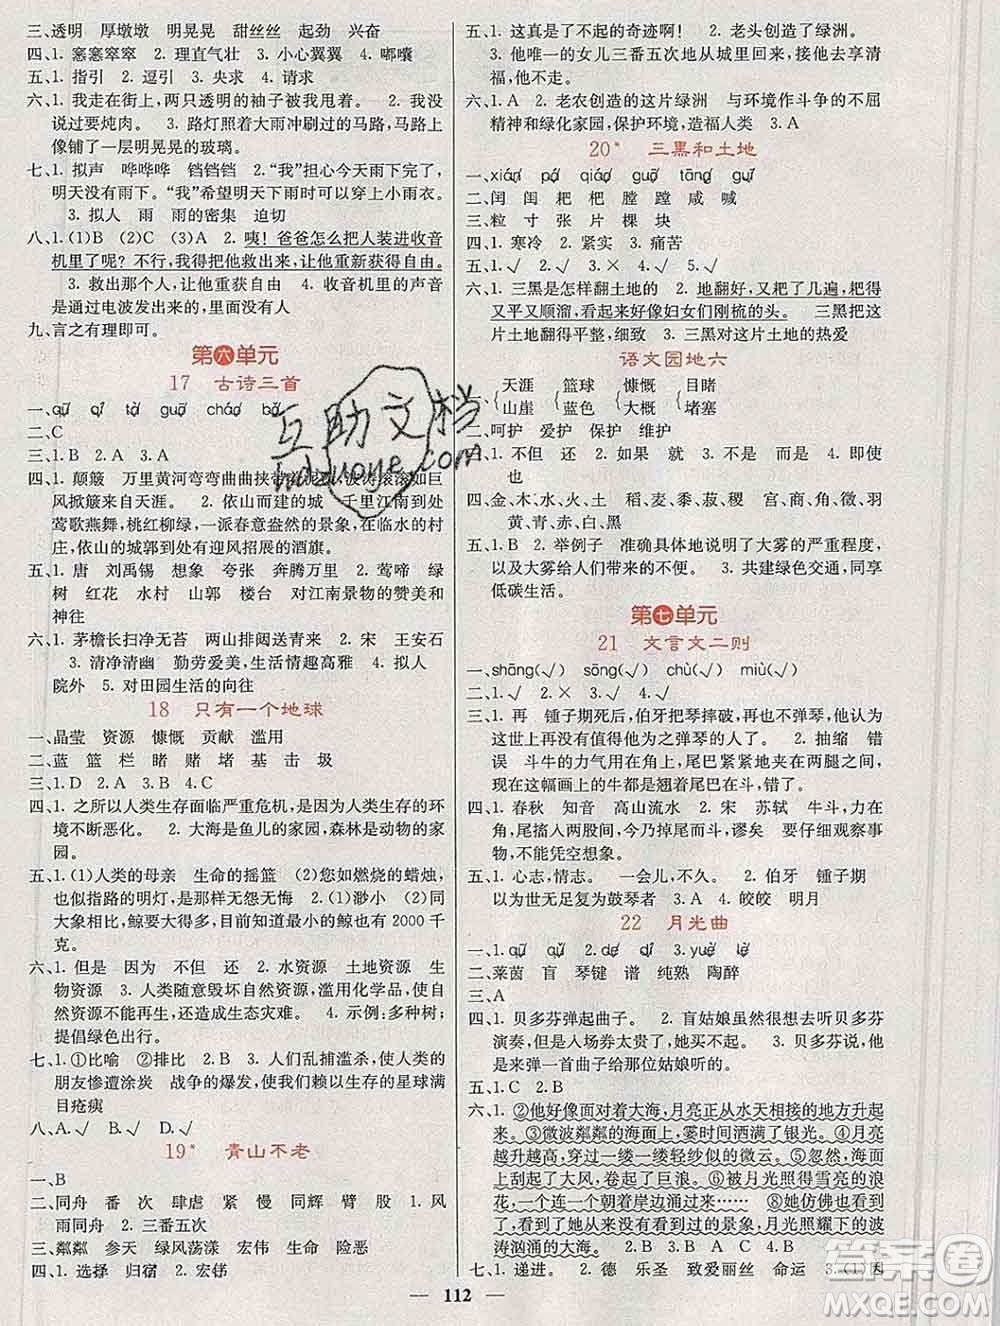 三、透明 厚墩墩 明晃晃 甜丝丝 起劲 兴奋
四、1. 窸窸窣窣 2. 理直气壮 3. 小心翼翼 4. 嘟囔
五、1. 指引 2. 逗引 3. 央求 4. 请求
六、1. 我走在街上，两只透明的袖子被我甩着。 2. 我没
说过要炖肉。 3. 路灯照着大雨冲刷过的马路，马路上
像铺了一层明晃晃的玻璃。
七、1. 拟声 哗哗哗 铛铛铛 2.“我”担心今天雨下完了，
明天没有雨下。“我”希望明天下雨能穿上小雨衣。
3. 拟人 雨 雨的密集 迫切
八、1. (1)B (2)C (3)A 2. 咦！爸爸怎么把人装进收音
机里了呢？不行，我得把他救出来，让他重新获得自由。
3. 救出那个人，让他重获自由 4. 收音机里的声音
是通过电波发出来的，里面没有人
九、言之有理即可。
第六单元
17 古诗三首
二、C
三、1. B 2. A 3. B
四、1. 颠簸 万里黄河弯弯曲曲挟带着泥沙，波涛滚滚如巨
风掀簸来自天涯。 2. 依山而建的城 千里江南到处
莺歌燕舞，桃红柳绿，一派春意盎然的景象，在临水的村
庄，依山的城郭到处有迎风招展的酒旗。
五、1. 唐 刘禹锡 想象 夸张 奔腾万里 2. 莺啼 绿
树 红花 水村 山郭 楼台 对江南景物的赞美和
神往
六、1. 茅檐长扫净无苔 两山排闼送青来 2. 宋 王安石
3. 清清净幽 勤劳爱美，生活情趣高雅 4. 拟人
院外 5. 对田园生活的向往
18 只有一个地球
一、晶莹 资源 慷慨 贡献 滥用
二、蓝 篮 栏 睹 赌 堵 基 击 圾
三、1. D 2. A 3. B 4. C
四、1. 之所以人类生存面临严重危机，是因为人类生存的环
境不断恶化。 2. 大海是鱼儿的家园，森林是动物的家
园。
五、1. (1)人类的母亲 生命的摇篮 (2)您如燃烧的蜡烛，
也似指路的明灯，从来无怨无悔 2. (1)渺小 (2)同
大象相比，鲸要大得多，目前知道最小的鲸也有 2000 千
克。
六、1. 但是 因为 不但 还 2. 水资源 土地资源 生
物资源 3. 人类随意毁坏自然资源，滥用化学品，使它
们不能再生，还造成生态灾难。 4. 示例：多种树；
提倡绿色出行。
七、1. ①比喻 ②排比 2. B 3. 人们乱捕滥杀，使人类的
朋友惨遭涂炭 战争的爆发，使我们赖以生存的星球满
目疮痍
八、A. √ B. √ D. √
19* 青山不老
一、B
二、同舟 番 次 肆虐 紧 慢 同辉 臂 股 1. 风
雨同舟 2. 三番五次
三、粼粼 参天 绿风荡漾 宏伟 生命 险恶
四、1. 选择 归宿 2. 宏伟
五、1. 这真是了不起的奇迹啊！ 2. 老头创造了绿洲。
3. 他唯一的女儿三番五次地从城里回来，要接他去享清
福，他不走。
六、1. A 2. 老农创造的这片绿洲 与环境作斗争的不屈
精神和绿化家园，保护环境，造福人类 3. A
20* 三黑和土地
二、闰 闺 耙 杷 膛 蹚 咸 喊
三、粒 寸 张 片 棵 块
四、1. 寒冷 2. 紧实 3. 痛苦
五、1. √ 2. √ 3. × 4. √
六、1. 三黑是怎样翻土地的 2. 地翻好，又耙了几遍，耙得
又平又顺溜，看起来好像妇女们刚梳的头。 3. 三黑把
这片土地翻得平整，细致 4. 三黑对这片土地的热爱
语文园地六
一、天涯 篮球 慷慨 目睹
山崖 蓝色 大概 堵塞
二、呵护 爱护 保护 维护
三、1. 不但 还 2. 如果 就 3. 不是 而是 4. 即使
也
四、金、木、水、火、土 稻、麦、黍、菽、稷 宫、商、角、徵、羽
黄、青、赤、白、黑
五、1. B 2. 举例子 准确具体地说明了大雾的严重程度，
以及大雾给人们带来的不便。 3. 共建绿色交通，同享
低碳生活。
第七单元
21 文言文二则
一、shāng(√) sōng(√) chù(√) miù(√)
二、1. √ 2. × 3. √ 4. √
三、1. 再 锤子期死后，伯牙把琴摔破，再不弹琴，认为
这世上再没有值得他为之弹琴的人了。 2. 抽缩 错
误 斗牛的力气用在角上，尾巴紧紧地夹在两腿之间，
现在这幅画上的牛却翘着尾巴在斗，错了。
四、1. 春秋 知音 高山流水 2. 宋 苏轼 牛斗，力在
角，尾搐入两股间，今乃掉尾而斗，谬矣 要仔细观察事
物，不能凭空想象。
五、1. 心志，情志。 一会儿，不久。 2. 伯牙 锤子期
以为世无足复为鼓琴者 3. 巍峨 4. 皎皎 明月
22 月光曲
二、莱茵 盲 琴键 谱 纯熟 陶醉
三、A
四、1. 贝多芬弹起曲子。 2. 盲姑娘虽然很想去听贝多芬
演奏，但入场券太贵了，她买不起。 3. 贝多芬走进茅
屋，给穷兄妹俩弹一首曲子给那位姑娘听的。
五、1. C 2. B
六、1. ②他好像面对着大海，月亮正从水天相接的地方升起
来。 ③微波粼粼的海面上，霎时间洒满了银光。 ④月亮
越升越高，穿过一缕一缕轻纱似的微云。 ⑤忽然，海面
上刮起了大风，卷起了巨浪。 ⑥被月光照得雪亮的浪
花，一个连一个朝着岸边涌过来…… ⑧她仿佛也看到
了，看到了她从来没有看到过的景象，月光照耀下的波
涛汹涌的大海。 2. B
七、1. 递进。 2. 德 乐圣 致爱丽丝 命运 3. (1)因
112
互助文档
hdzuoye.com
答案圈
MXQE.COM